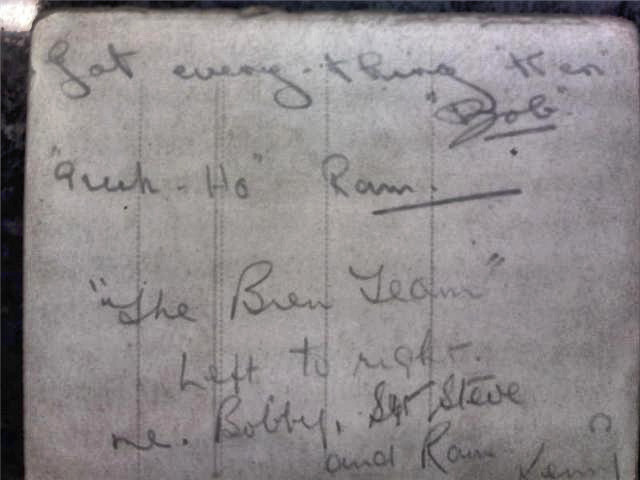 Got every-thing Ken
"Bob"
- Ho" Ram.
"The Bren Team"
Left to right.
me. Bobby, Sgt Steve
and Ram